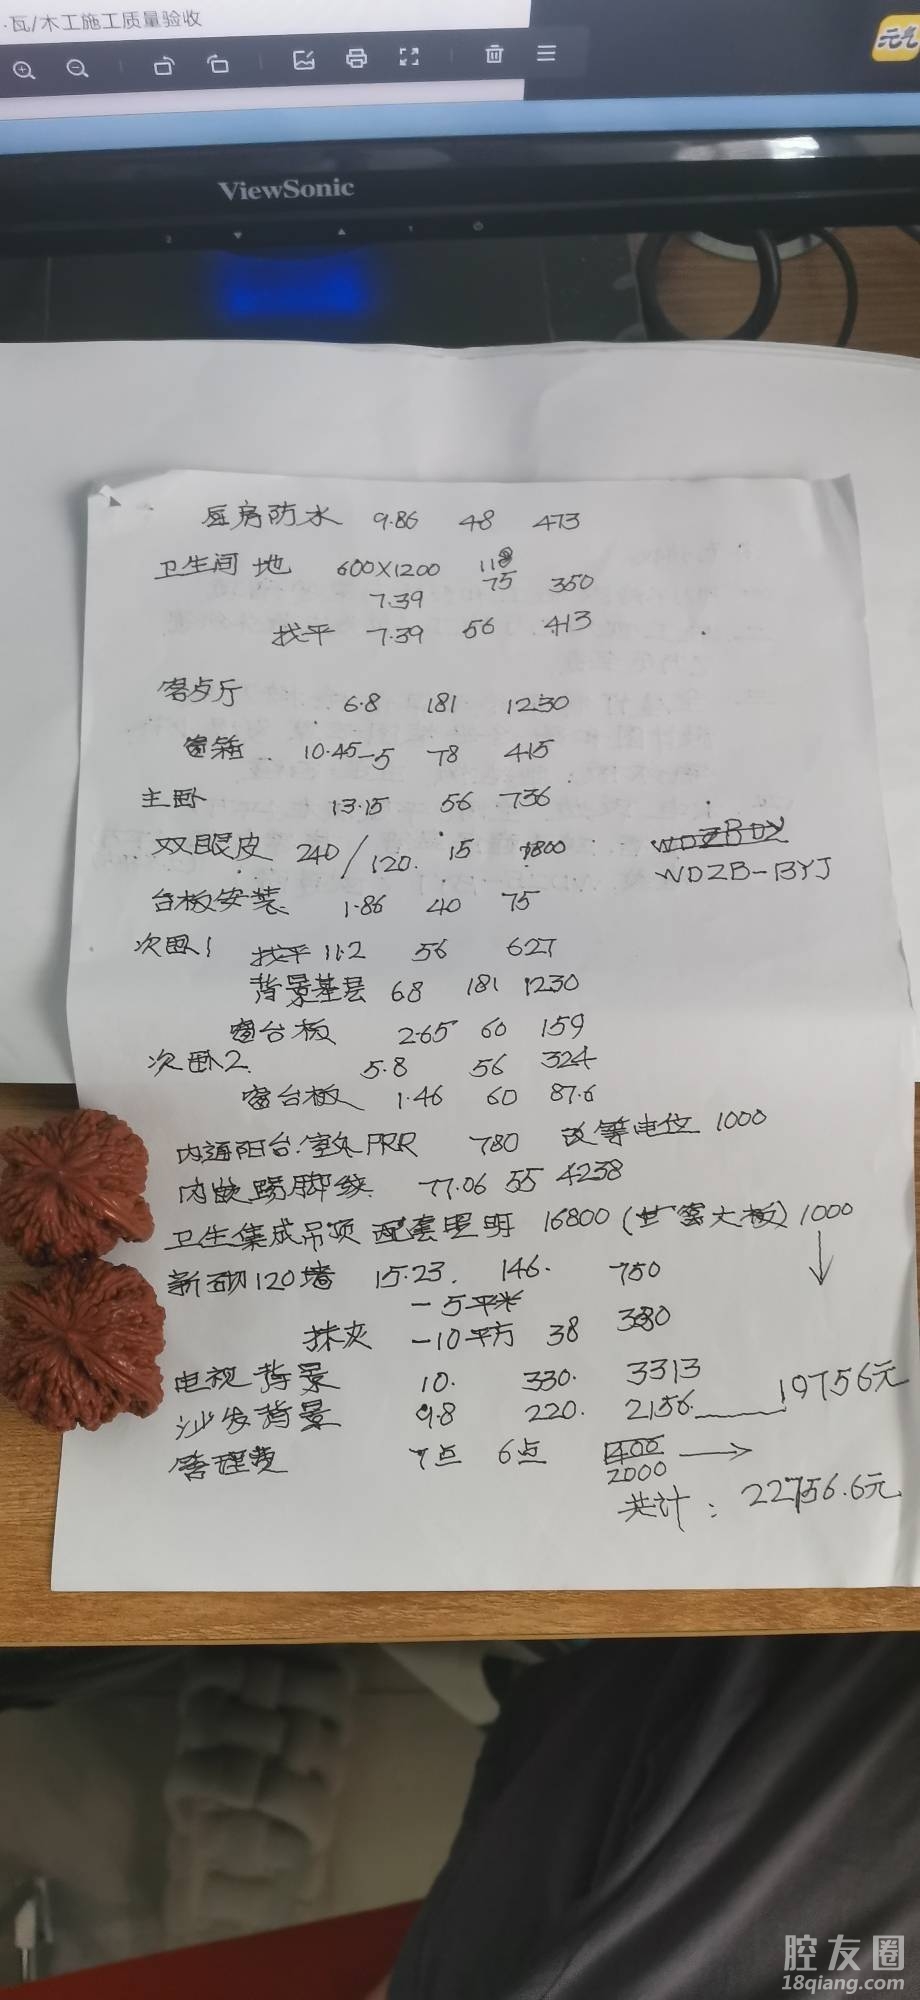 ·瓦/木工施工质量验收
元气
ViewSonic
2 ▼ ▲ 1
厨房防水 9.86 48 473
卫生间 地 600X1200 118
7.39 75 350
找平 7.39 56 413
客厅 6.8 181 1230
窗箱 10.45-5 78 415
主卧 13.15 56 736
双眼皮 240/120. 15 1800
WDZB-BYJ
台板安装 1.86 40 75
次卧1 找平 11.2 56 627
背景基层 68 181 1230
窗台板 2.65 60 159
次卧2 5.8 56 324
窗台板 1.46 60 87.6
内通阳台. PRR 780 改等电位 1000
内嵌踢脚线 77.06 55 4238
卫生集成吊顶 配套照明 16800 (大板) 1000
新砌120墙 15.23. 146. 750
-5平米
抹灰 -10平方 38 380
电视背景 10. 330. 3313
沙发背景 9.8 220. 2156 19756元
管理费 7点 6点 1400
2000
共计: 22756.6元
腔友圈
18qiang.com